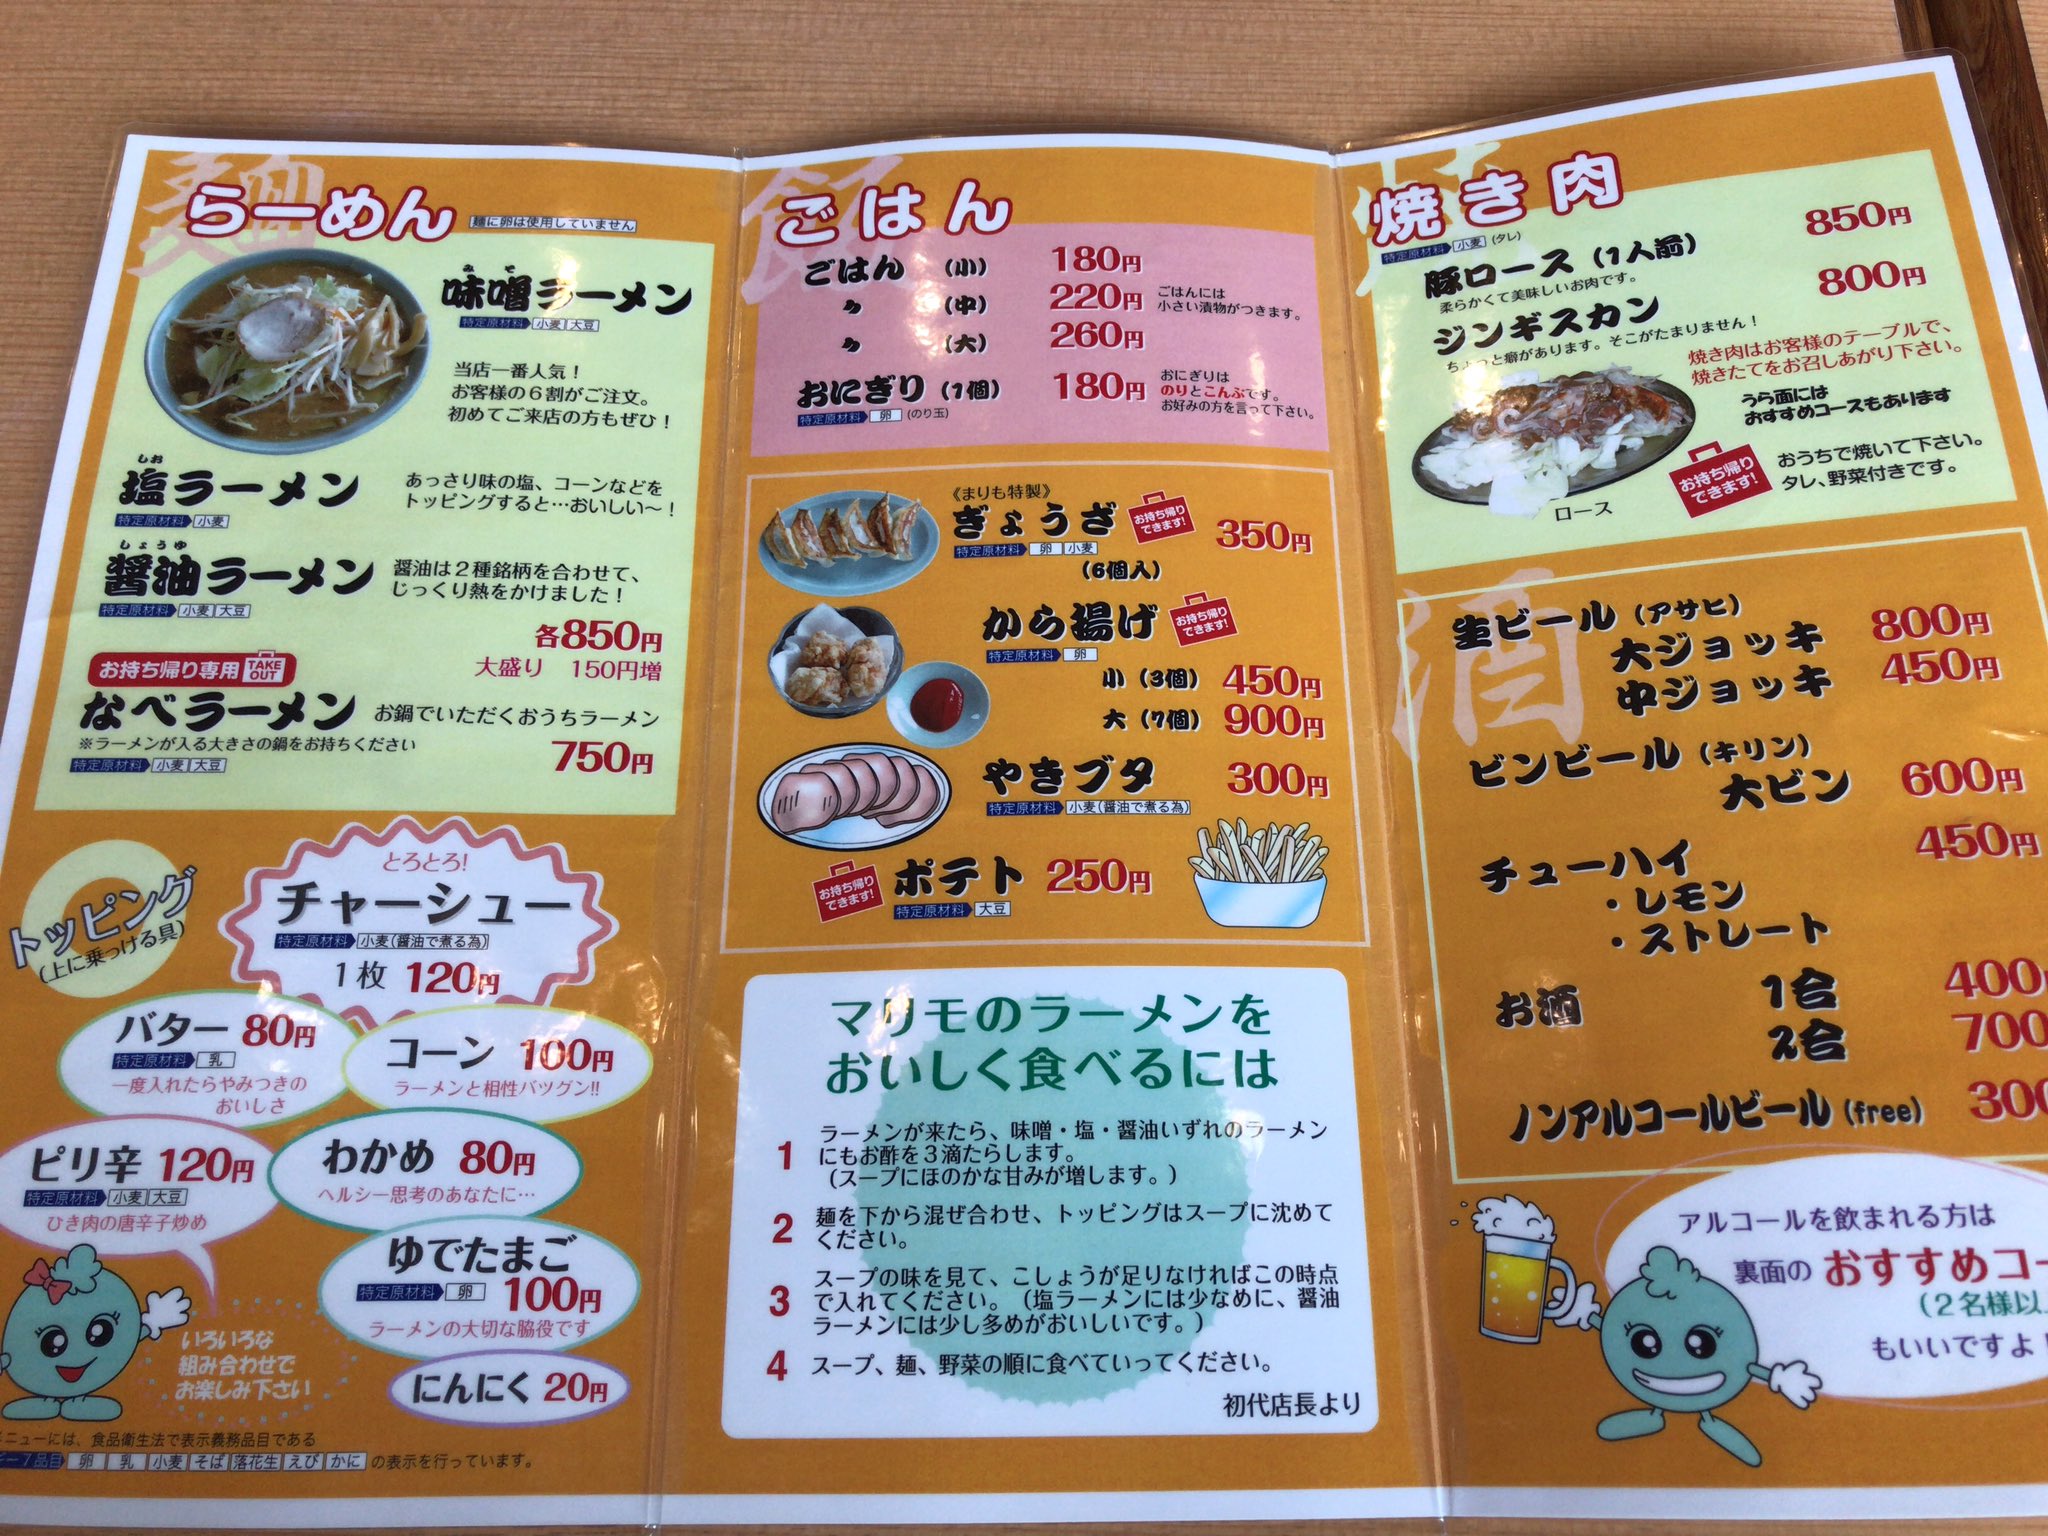 麺
らーめん
麺に卵は使用していません
みそ
味噌ラーメン
特定原材料 小麦 大豆
当店一番人気！
お客様の6割がご注文。
初めてご来店の方もぜひ！
しお
塩ラーメン
特定原材料 小麦
あっさり味の塩、コーンなどを
トッピングすると…おいしい〜！
しょうゆ
醤油ラーメン
特定原材料 小麦 大豆
醤油は2種銘柄を合わせて、
じっくり熱をかけました！
各850円
大盛り 150円増
お持ち帰り専用 TAKE OUT
なべラーメン
お鍋でいただくおうちラーメン
※ラーメンが入る大きさの鍋をお持ちください
750円
特定原材料 小麦 大豆
トッピング
(上に乗っける具)
とろとろ!
チャーシュー
特定原材料 小麦(醤油で煮る為)
1枚 120円
バター 80円
特定原材料 乳
一度入れたらやみつきの
おいしさ
コーン 100円
ラーメンと相性バツグン!!
ピリ辛 120円
特定原材料 小麦 大豆
ひき肉の唐辛子炒め
わかめ 80円
ヘルシー思考のあなたに…
ゆでたまご
特定原材料 卵 100円
ラーメンの大切な脇役です
にんにく 20円
いろいろな
組み合わせで
お楽しみ下さい
ニューには、食品衛生法で表示義務品目である
ー7品目 卵 乳 小麦 そば 落花生 えび かに の表示を行っています。
飯
ごはん
ごはん (小) 180円
〃 (中) 220円
〃 (大) 260円
ごはんには
小さい漬物がつきます。
おにぎり (1個) 180円
特定原材料 卵 (のり玉)
おにぎりは
のりとこんぶです。
お好みの方を言って下さい。
《まりも特製》
ぎょうざ
お持ち帰りできます!
350円
特定原材料 卵 小麦
(6個入)
から揚げ
お持ち帰りできます!
特定原材料 卵
小 (3個) 450円
大 (7個) 900円
やきブタ 300円
特定原材料 小麦(醤油で煮る為)
お持ち帰りできます!
ポテト 250円
特定原材料 大豆
マリモのラーメンを
おいしく食べるには
1 ラーメンが来たら、味噌・塩・醤油いずれのラーメン
にもお酢を3滴たらします。
（スープにほのかな甘みが増します。）
2 麺を下から混ぜ合わせ、トッピングはスープに沈めて
ください。
3 スープの味を見て、こしょうが足りなければこの時点
で入れてください。（塩ラーメンには少なめに、醤油
ラーメンには少し多めがおいしいです。）
4 スープ、麺、野菜の順に食べていってください。
初代店長より
焼
焼き肉
特定原材料 小麦 (タレ)
豚ロース (1人前) 850円
柔らかくて美味しいお肉です。
ジンギスカン 800円
ちょっと癖があります。そこがたまりません！
焼き肉はお客様のテーブルで、
焼きたてをお召しあがり下さい。
うら面には
おすすめコースもあります
お持ち帰りできます!
おうちで焼いて下さい。
タレ、野菜付きです。
ロース
酒
生ビール (アサヒ)
大ジョッキ 800円
中ジョッキ 450円
ビンビール (キリン)
大ビン 600円
チューハイ 450円
・レモン
・ストレート
お酒 1合 400
2合 700
ノンアルコールビール (free) 300
アルコールを飲まれる方は
裏面の おすすめコー
(2名様以
もいいですよ！